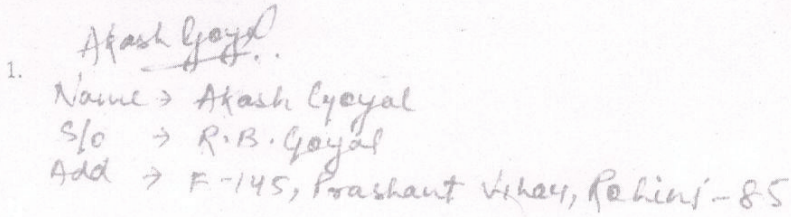 Akash Goyal
1.
Name → Akash Goyal
S/o → R.B. Goyal
Add → F-145, Prashant Vihar, Rohini-85